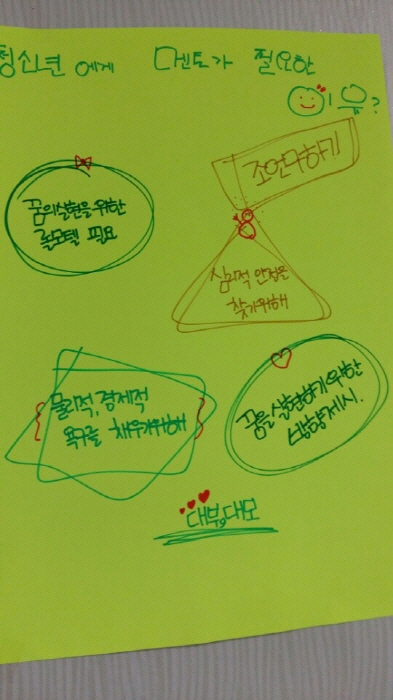 청소년에게 멘토가 필요한
이유?
조언구하기
꿈의실현을위한
롤모델 필요
심리적 안정을
찾기위해
물리적, 경제적
욕구를 채우기위해
꿈을실현하기위한
방향제시.
대부,대모